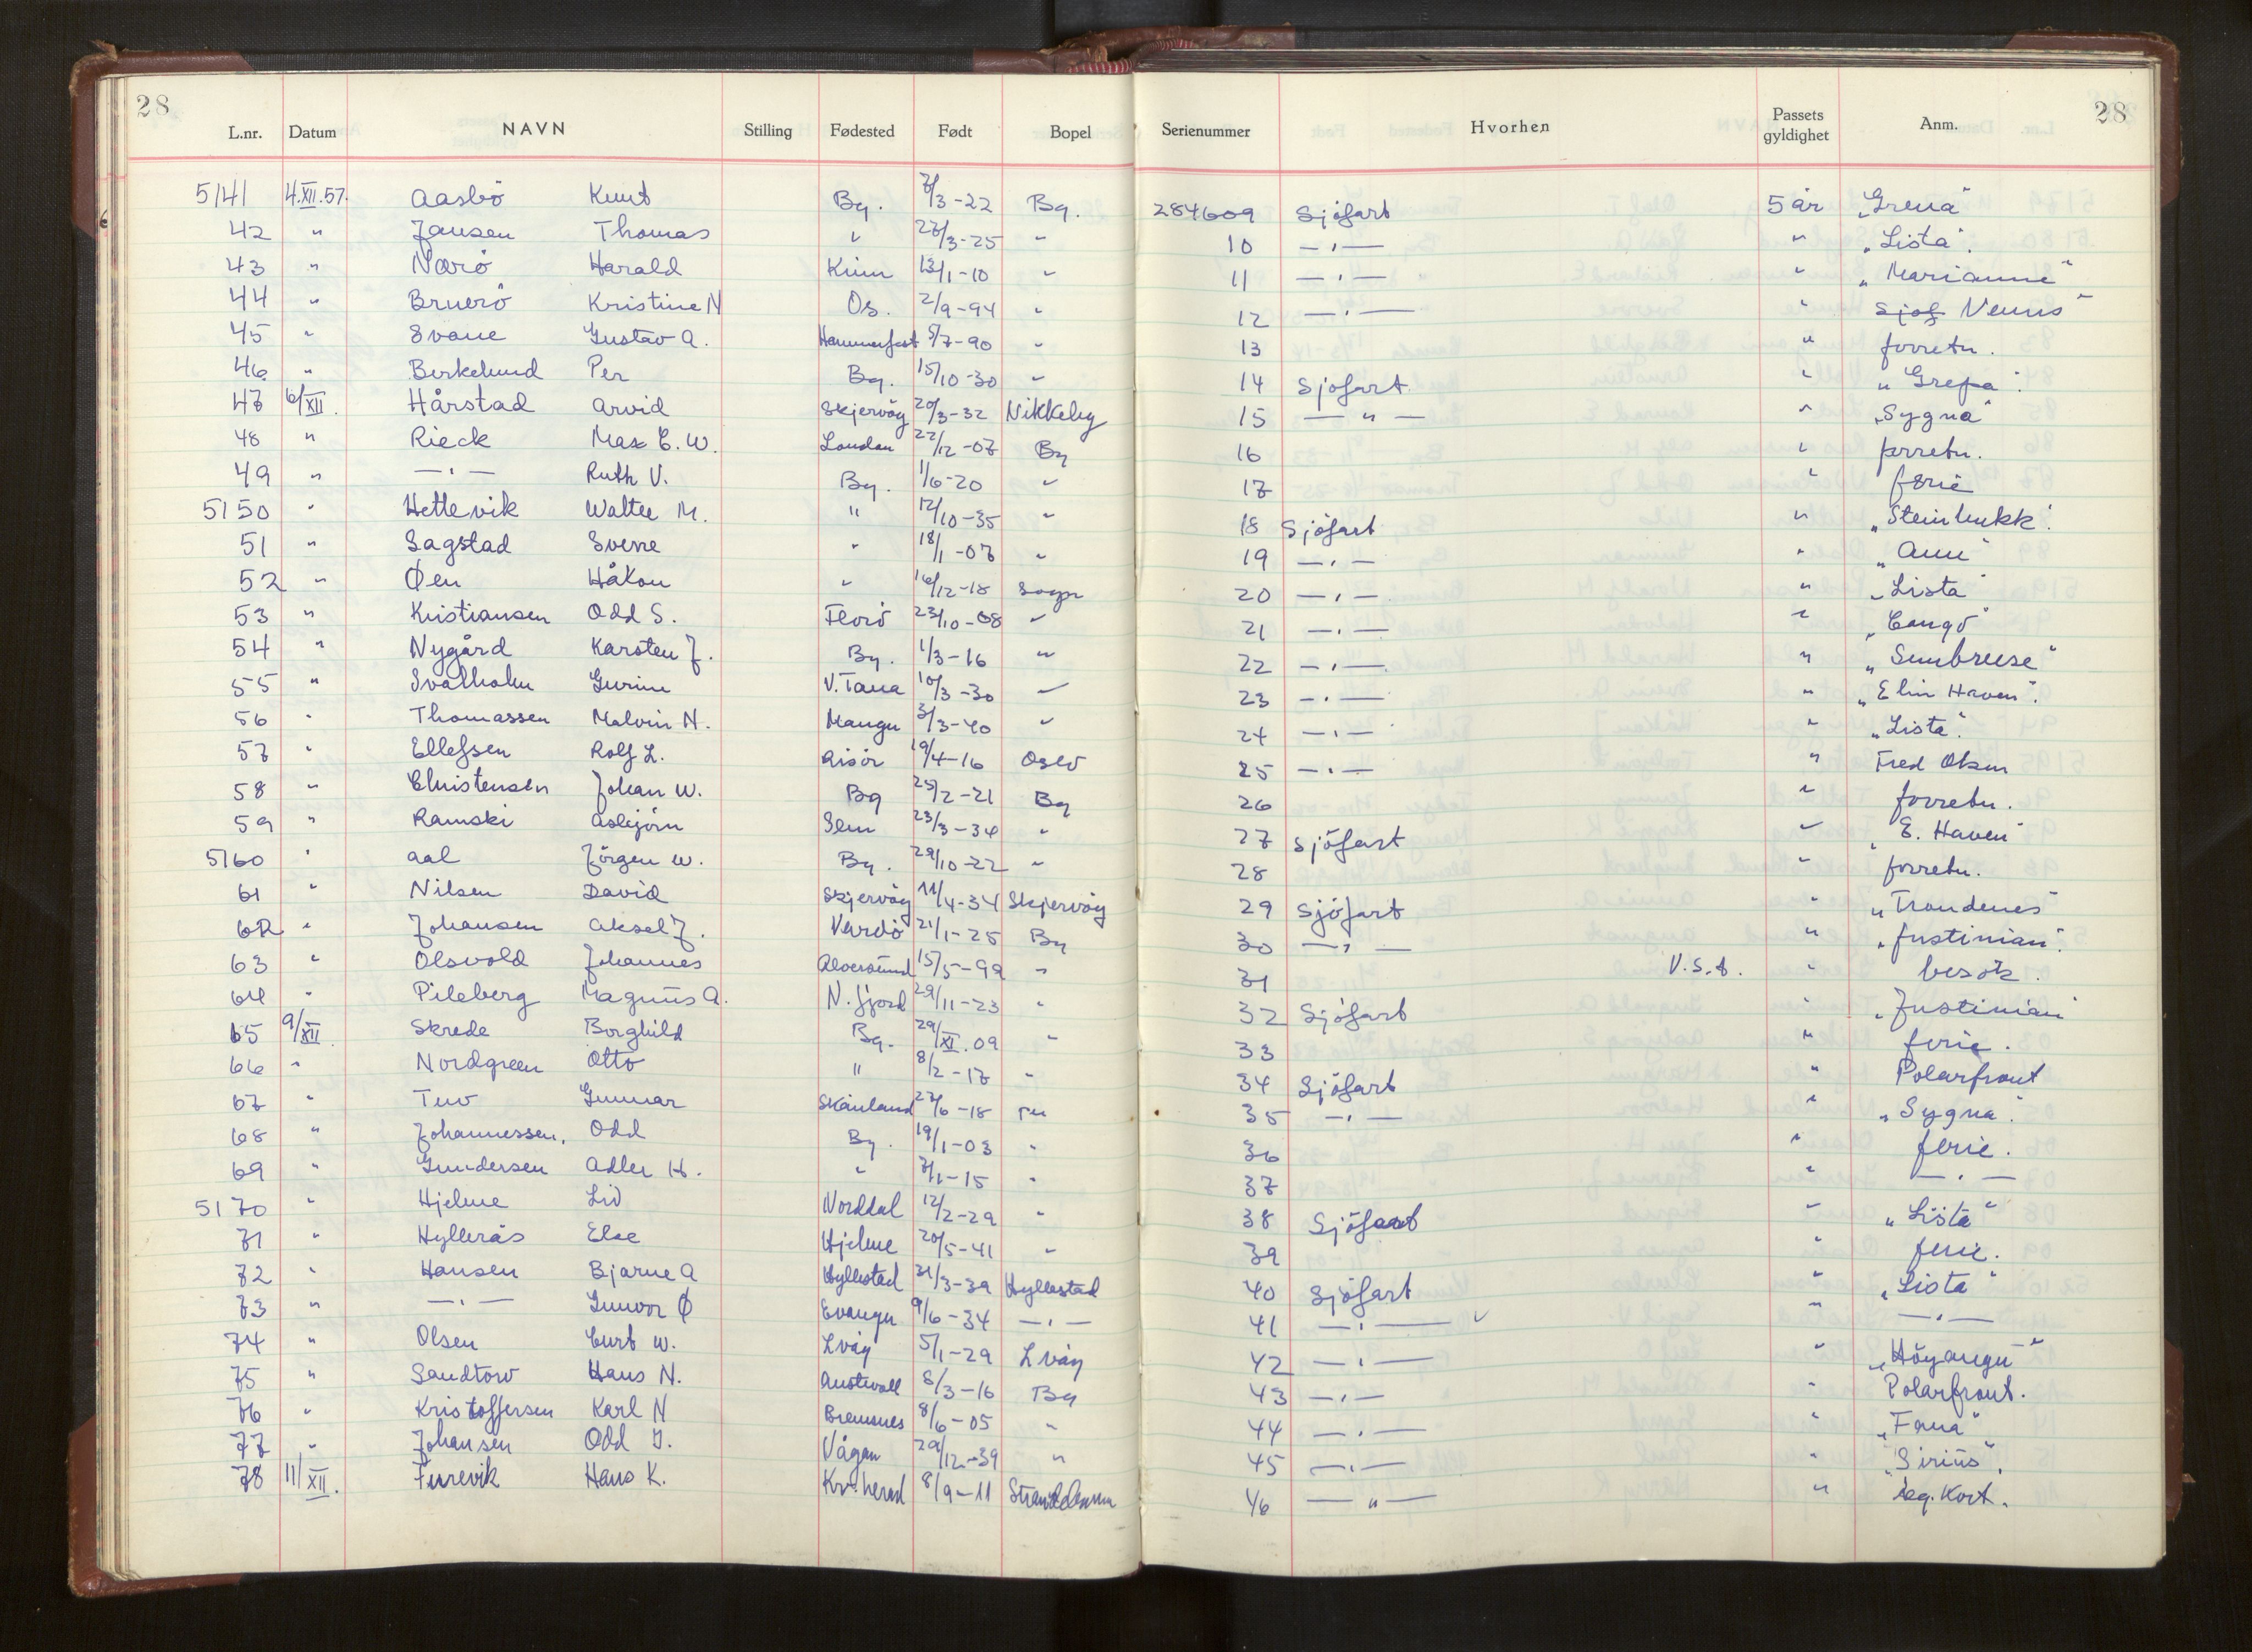 28 28
L.nr. Datum NAVN Stilling Fødested Født Bopel Serienummer Hvorhen Passets gyldighet Anm.
5141 4.XII.57. Aasbö Knut Bg. 7/3-22 Bg. 284609 Sjöfart 5 år "Grena"
42 " Jansen Thomas " 27/3-25 " 10 —"— " "Lista".
43 " Narö Harald Kinn 13/1-10 " 11 —"— " "Marianne"
44 " Bruerö Kristine N Os. 2/9-94 " 12 —"— " Sjöf Venus"
45 " Svane Gustav A. Hammerfest 5/7-90 " 13 " forretn.
46 " Berkelund Per Bg. 15/10-30 " 14 Sjöfart " "Grepa".
47 6/XII. Hårstad Arvid Skjervöy 20/3-32 Nikkeby 15 —"— " "Sygna"
48 " Rieck Max E. W. London 22/12-07 Bg 16 " forretn.
49 " —"— Ruth V. Bg. 1/6-20 " 17 " ferie
5150 " Hettevik Walter M. " 12/10-35 " 18 Sjöfart " "Steinbukk".
51 " Sagstad Sverre " 18/1-07 " 19 —"— " "Ann"
52 " Øen Håkon " 16/12-18 Sogn 20 —"— " "Lista"
53 " Kristiansen Odd S. Florö 23/10-08 " 21 —"— " "Congo"
54 " Nygård Karsten J. Bg. 1/3-16 " 22 —"— " "Sunbreeze"
55 " Svalholm Gurine V. Tana 10/3-30 " 23 —"— " "Elin Haven".
56 " Thomassen Malvin N. Manger 3/3-40 " 24 —"— " "Lista".
57 " Ellefsen Rolf L. Risör 19/4-16 Oslo 25 —"— " Fred Olsen
58 " Christensen Johan W. Bg 25/2-21 Bg 26 " forretn.
59 " Ramski Asbjörn Sem 23/3-34 " 27 Sjöfart " "E. Haven"
5160 " Aal Jörgen W. Bg. 29/10-22 " 28 " forretn.
61 " Nilsen David Skjervöy 11/4-34 Skjervöy 29 Sjöfart " "Trondenes"
62 " Johansen Aksel J. Vardö 21/1-25 Bg 30 —"— " "Justinian".
63 " Olsvold Johannes Alversund 15/5-99 " 31 V.S.A. " besök.
64 " Pileberg Magnus A. N. fjord 29/11-23 " 32 Sjöfart " "Justinian"
65 9/XII. Skrede Borghild Bg. 29/XI.09 " 33 " ferie.
66 " Nordgreen Otto " 8/2-17 " 34 Sjöfart " Polarfront
67 " Tuv Gunnar Skånland 27/6-18 " 35 —"— " "Sygna".
68 " Johannessen, Odd Bg. 19/1-03 " 36 " ferie.
69 " Gundersen Adler H. " 7/1-15 " 37 " —"—
5170 " Hjelme Liv Norddal 12/2-29 " 38 Sjöfart " "Lista"
71 " Hyllerås Else Hjelme 20/5-41 " 39 " ferie.
72 " Hansen Bjarne A Hyllestad 31/3-39 Hyllestad 40 Sjöfart " "Lista"
73 " —"— Gunvor Ø Evanger 9/6-34 —"— 41 —"— " —"—
74 " Olsen Curt W. Lvåg 5/1-29 Lvåg 42 —"— " "Höyanger"
75 " Sandtorv Hans N. Austevoll 8/3-16 Bg 43 —"— " Polarfront.
76 " Kristoffersen Karl N Bremsnes 8/6-05 " 44 —"— " "Fana"
77 " Johansen Odd I. Vågan 29/12-39 " 45 —"— " "Sirius".
78 11/XII. Furevik Hans K. Kv.herad 8/9-11 Strandebarm 46 —"— " leg. Kort.